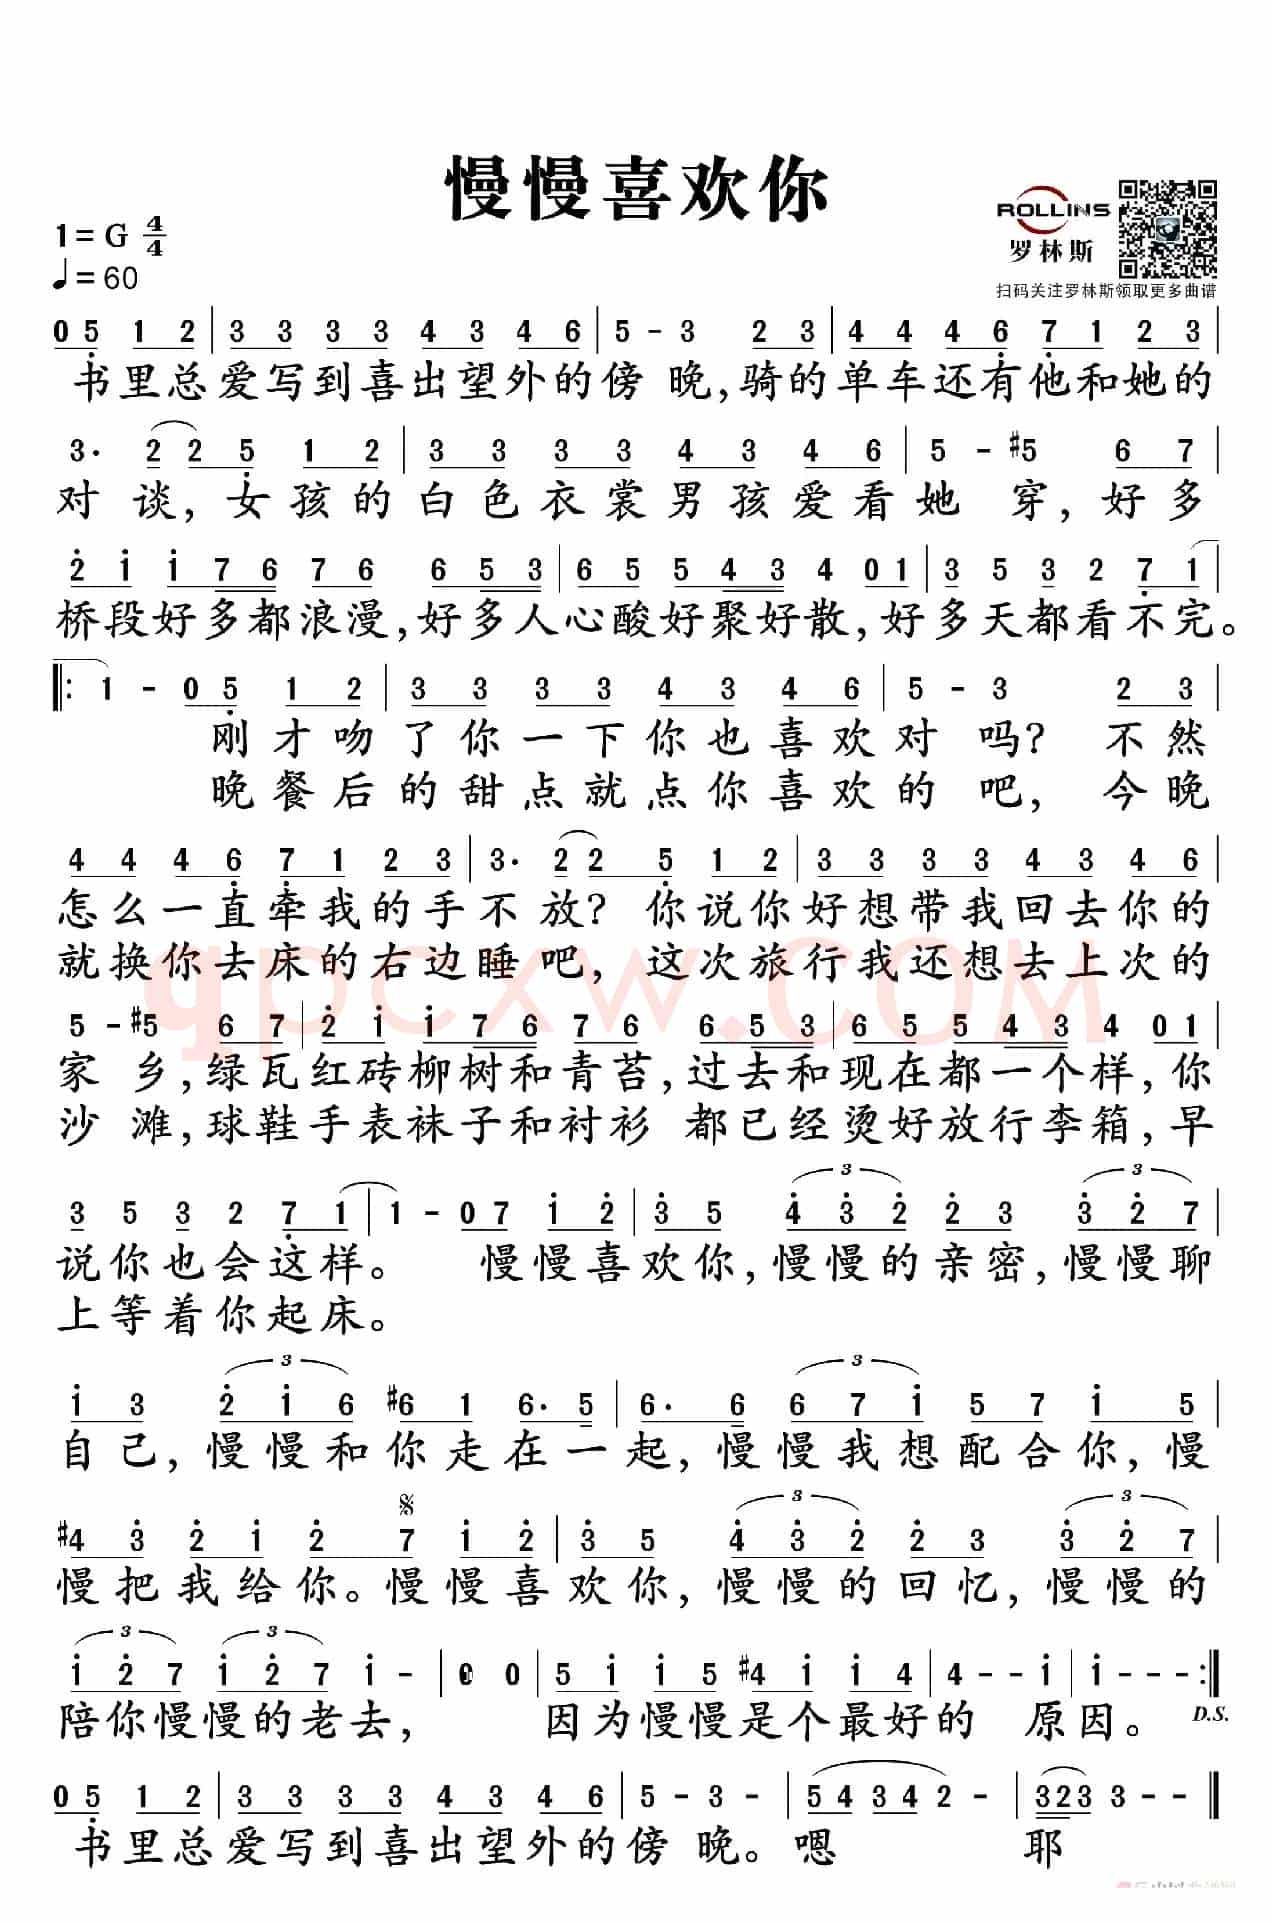 慢慢喜欢你
ROLLINS
罗林斯
扫码关注罗林斯领取更多曲谱
1=G 4/4
♩=60
0 5 1 2 | 3 3 3 3 4 3 4 6 | 5 - 3 2 3 | 4 4 4 6 7 1 2 3 |
书里总爱写到喜出望外的傍晚,骑的单车还有他和她的
3· 2 2 5 1 2 | 3 3 3 3 4 3 4 6 | 5 - #5 6 7 |
对谈,女孩的白色衣裳男孩爱看她穿,好多
2 1 1 7 6 7 6 6 5 3 | 6 5 5 4 3 4 0 1 | 3 5 3 2 7 1 |
桥段好多都浪漫,好多人心酸好聚好散,好多天都看不完。
‖: 1 - 0 5 1 2 | 3 3 3 3 4 3 4 6 | 5 - 3 2 3 |
刚才吻了你一下你也喜欢对吗?不然
晚餐后的甜点就点你喜欢的吧,今晚
4 4 4 6 7 1 2 3 | 3· 2 2 5 1 2 | 3 3 3 3 4 3 4 6
怎么一直牵我的手不放?你说你好想带我回去你的
就换你去床的右边睡吧,这次旅行我还想去上次的
qpcxw.COM
5 - #5 6 7 | 2 1 1 7 6 7 6 6 5 3 | 6 5 5 4 3 4 0 1 |
家乡,绿瓦红砖柳树和青苔,过去和现在都一个样,你
沙滩,球鞋手表袜子和衬衫 都已经烫好放行李箱,早
3 3
3 5 3 2 7 1 | 1 - 0 7 1 2 | 3 5 4 3 2 2 3 3 2 7 |
说你也会这样。 慢慢喜欢你,慢慢的亲密,慢慢聊
上等着你起床。
3 3
1 3 2 1 6 #6 1 6· 5 | 6· 6 6 7 1 5 7 1 5 |
自己,慢慢和你走在一起,慢慢我想配合你,慢
3 3
#4 3 2 1 2 7 1 2 | 3 5 4 3 2 2 3 3 2 7 |
慢把我给你。慢慢喜欢你,慢慢的回忆,慢慢的
3 3
1 2 7 1 2 7 1 - | 0 0 | 5 1 1 5 #4 1 1 4 | 4 - - 1 | 1 - - - :‖
陪你慢慢的老去, 因为慢慢是个最好的 原因。 D.S.
0 5 1 2 | 3 3 3 3 4 3 4 6 | 5 - 3 - | 5 4 3 4 2 - | 3 2 3 3 - - ‖
书里总爱写到喜出望外的傍晚。嗯 耶